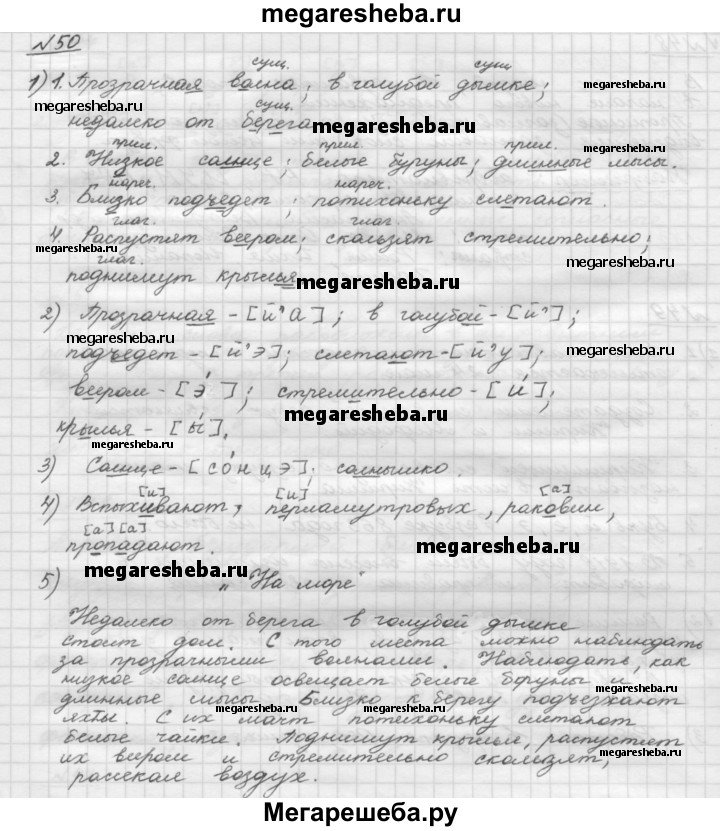 megaresheba.ru
№50
сущ. сущ
1) 1. Прозрачная волна; в голубой дымке;
megaresheba.ru
megaresheba.ru
сущ.
недалеко от берега
megaresheba.ru
прил. прил. прил.
2. Низкое солнце; белые буруны; длинные мысы.
нареч. нареч.
3. Близко подъедет; потихоньку слетают.
глаг. глаг.
4. Распустят веером; скользят стремительно;
megaresheba.ru
megaresheba.ru
глаг.
поднимут крылья
megaresheba.ru
2) Прозрачная - [й'а]; в голубой - [й'];
подъедет - [й'э]; слетают - [й'у];
megaresheba.ru
веером - [э́]; стремительно - [и́];
megaresheba.ru
крылья - [ы́].
megaresheba.ru
3) Солнце - [со́нцэ]; солнышко.
[и] [и] [а]
4) Вспыхивают, перламутровых, раковин,
[а] [а]
пропадают.
megaresheba.ru
5) „На море"
megaresheba.ru
Недалеко от берега в голубой дымке
стоит дом. С того места можно наблюдать
за прозрачными волнами. Наблюдать, как
megaresheba.ru
низкое солнце освещает белые буруны и
длинные мысы. Близко к берегу подъезжают
megaresheba.ru
яхты. С их мачт потихоньку слетают
megaresheba.ru
белые чайки. Поднимут крылья, распустят
их веером и стремительно скользят,
megaresheba.ru
рассекая воздух.
Мегарешеба.ру